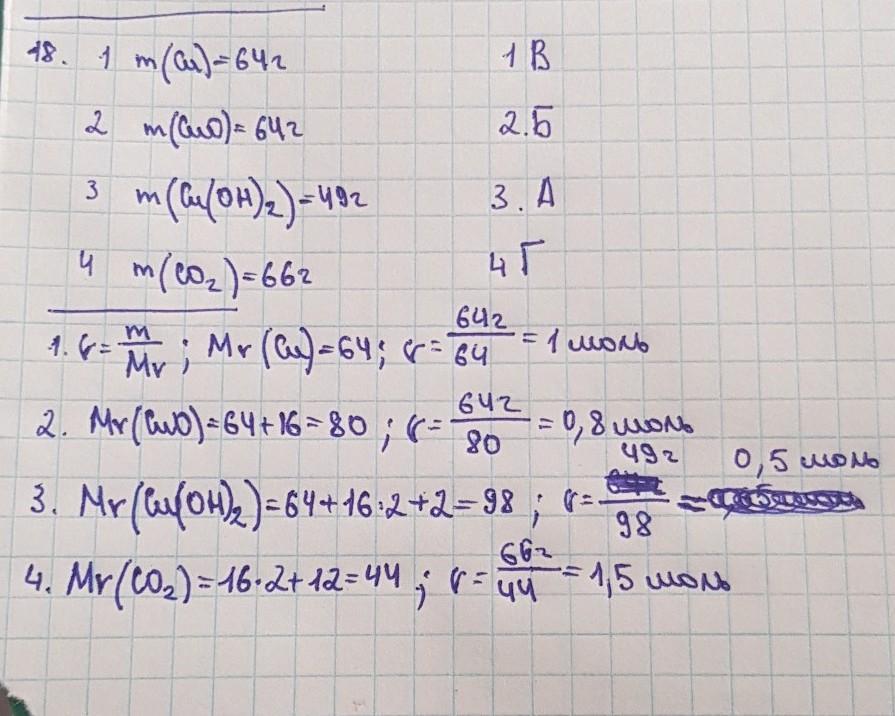 18. 1 m(Cu)=64г 1 В
2 m(CuO)=64г 2.Б
3 m(Cu(OH)₂)=49г 3. А
4 m(CO₂)=66г 4 Г
1. ν=m/Mr ; Mr(Cu)=64; ν=64г/64=1 моль
2. Mr(CuO)=64+16=80 ; ν=64г/80=0,8 моль
3. Mr(Cu(OH)₂)=64+16·2+2=98 ; ν=49г/98=0,5 моль
4. Mr(CO₂)=16·2+12=44 ; ν=66г/44=1,5 моль